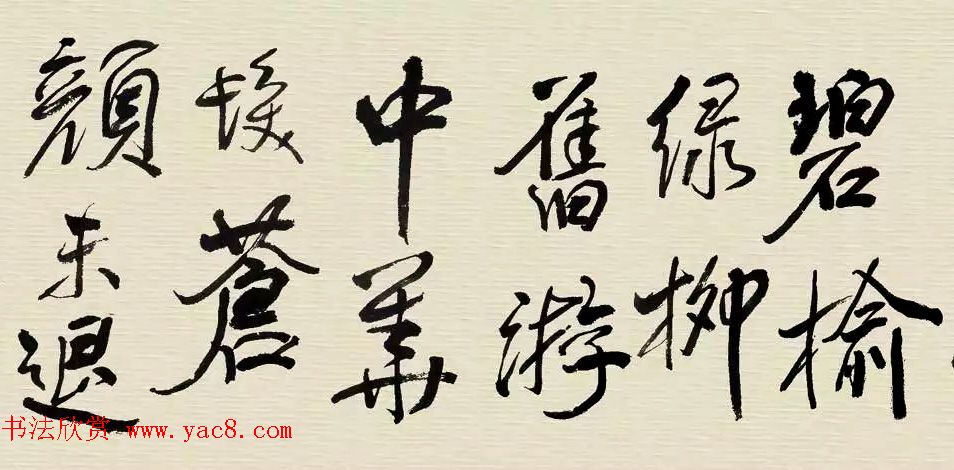 碧榆
绿柳
舊游
中華
髮蒼
顏未退
书法欣赏 www.yac8.com